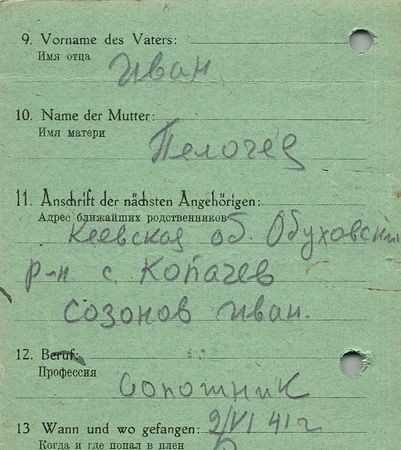 9. Vorname des Vaters:
Имя отца
Иван
10. Name der Mutter:
Имя матери
Пелогея
11. Anschrift der nächsten Angehörigen:
Адрес ближайших родственников
Кеевская об. Обуховский
р-н с. Копачев
Созонов Иван.
12. Beruf:
Профессия
Сопожник
13 Wann und wo gefangen: 2/VI 41 г
Когда и где попал в плен